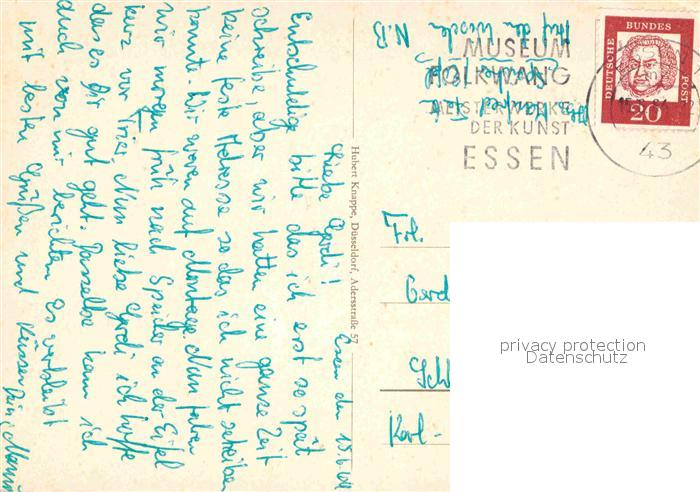 Essen den 15.6.64
Liebe Gerdi!
Entschuldige bitte das ich erst so spät
schreibe, aber wir hatten eine ganze Zeit
keine feste Adresse so das ich nicht schreiben
konnte. Wir waren auf Montage. Nun fahren
wir morgen früh nach Speicher an der Eifel
kurz vor Trier. Nun liebe Gerdi ich hoffe
das es Dir gut geht. Dasselbe kann ich
auch von mir berichten. Es verbleibt
mit besten Grüßen und Küssen
Dein
Hubert Knappe, Düsseldorf, Adersstraße 57
Abs. Manfred
Auf den Wiesen
N.B
MUSEUM
FOLKWANG
MEISTERWERKE
DER KUNST
ESSEN
43
DEUTSCHE BUNDESPOST
20
Frl.
Gerd
Sch
Karl-
privacy protection
Datenschutz